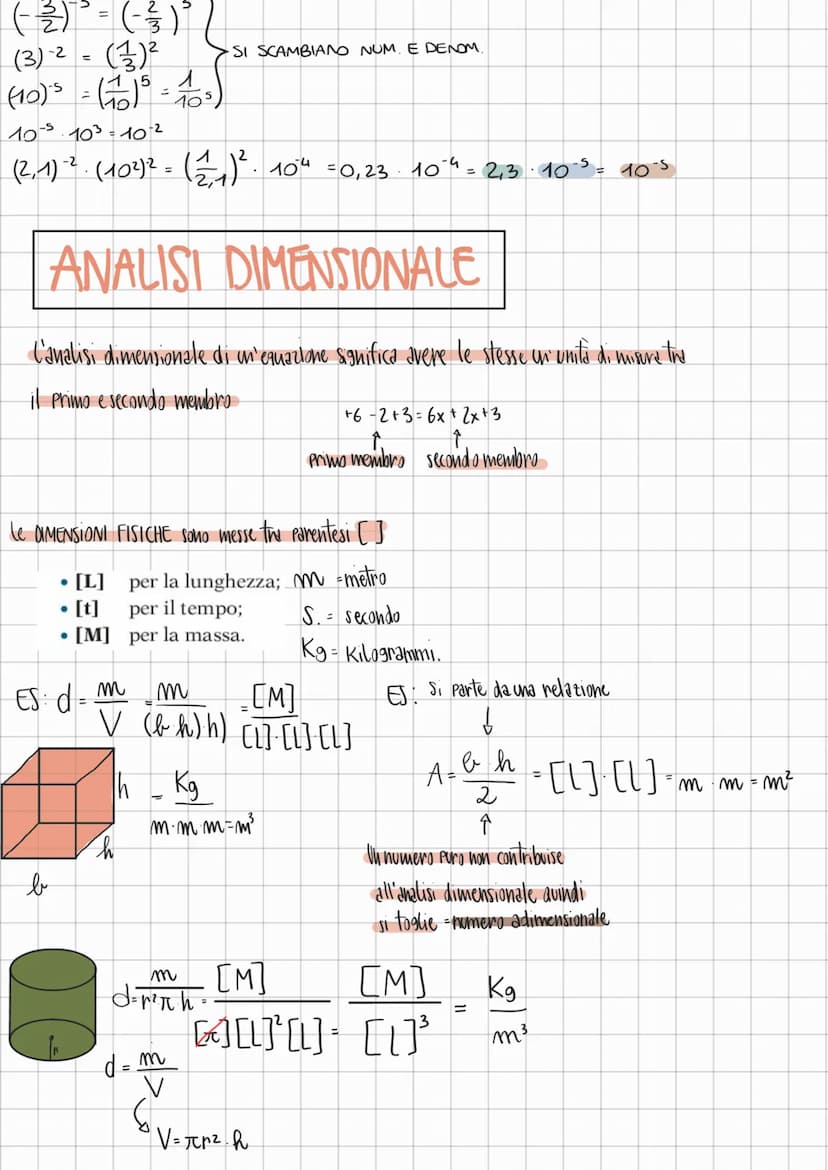 (-3/2)⁻³ = (-2/3)³
(3)⁻² = (1/3)²
SI SCAMBIANO NUM. E DENOM.
(10)⁻⁵ = (1/10)⁵ = 1/10⁵
10⁻⁵ · 10³ = 10⁻²
(2,1)⁻² · (10²)⁻² = (1/2,1)² · 10⁻⁴ = 0,23 · 10⁻⁴ = 2,3 · 10⁻⁵ = 10⁻⁵
ANALISI DIMENSIONALE
L'analisi dimensionale di un'equazione significa avere le stesse un'unità di misure tra
il primo e secondo membro
+6 -2+3 = 6x + 2x+3
primo membro secondo membro
le DIMENSIONI FISICHE sono messe tra parentesi [ ]
• [L] per la lunghezza; m = metro
• [t] per il tempo; s. = secondo
• [M] per la massa. Kg = Kilogrammi.
ES: d = m/V = m/(b·h)h) = [M]/[L]·[L][L]
h = Kg/m·m·m=m³
h
b
ES: Si parte da una relazione
A = b h/2 = [L]·[L] = m · m = m²
Un numero puro non contribuise
all'analisi dimensionale quindi
si toglie = numero adimensionale
d = m/r²π h = [M]/[π][L]²[L] = [M]/[L]³ = Kg/m³
r
d = m/V
V = πr² · h